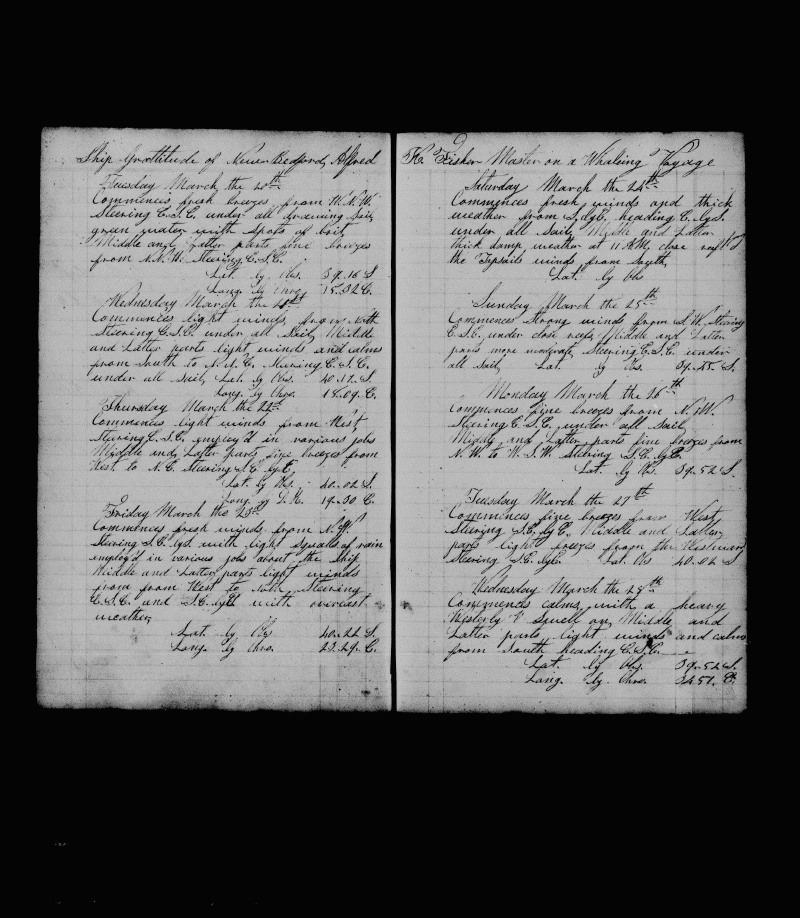 Ship Grattitude of New Bedford, Alfred
Tuesday March the 20th
Commences fresh breezes from W.N.W.
Steering E.S.E. under all drawing Sail
green water with Spots of brit
Middle and Latter parts fine breezes
from N.N.W. Steering E.S.E.
Lat. by Obs. 39.16 S
Long. by Chro. 15.32 E.
Wednesday March the 21st
Commences light winds from North
Steering E.S.E. under all Sail, Middle
and Latter parts light winds and calms
from South to Steering E.S.E.
under all Sail, Lat. by Obs. 40.12 S.
Long. by Chro. 18.09 E.
Thursday March the 22d
Commences light winds from West
Steering E.S.E. employ'd in various jobs
Middle and Latter parts fine breezes from
West to N.E. Steering S.E. by E.
Lat. by Obs. 40.02 S.
Long. by D.R. 19.30 E.
Friday March the 23d
Commences fresh winds from N.W.
Steering S.E. byE with light Squalls of rain
employ'd in various jobs about the Ship
Middle and Latter parts light winds
from from West to Steering
E.S.E. and S.E. byE with overcast
weather,
Lat. by Obs 40.22 S.
Long. by Chro. 23.29 E.
K. Fisher Master on a Whaling Voyage
Saturday March the 24th
Commences fresh winds and thick
weather from S.byE, heading E.byS.
under all Sail, Middle and Latter
thick damp weather at 11 AM, close reef'd
the Topsails winds from South,
Lat. by Obs
Sunday March the 25th
Commences Strong winds from S.W. Steering
E.S.E. under close reefs, Middle and Latter
parts more moderate, Steering E.S.E. under
all Sail, Lat. by Obs. 39.45 S.
Monday March the 26th
Commences fine breezes from N.W.
Steering E.S.E. under all Sail,
Middle and Latter parts fine breezes from
N.W. to W.S.W. Steering S.E. by E.
Lat. by Obs. 39.52 S.
Tuesday March the 27th
Commences fine breezes from West
Steering S.E. by E. Middle and Latter
parts light breezes from the Westward
Steering S.E. byE. Lat. Obs 40.02 S
Wednesday March the 28th
Commences calms, with a heavy
Westerly Swell on, Middle and
Latter parts light winds and calms
from South heading E.S.E.
Lat. by Obs. 39.52 S.
Long. by Chro. 34.51. E.